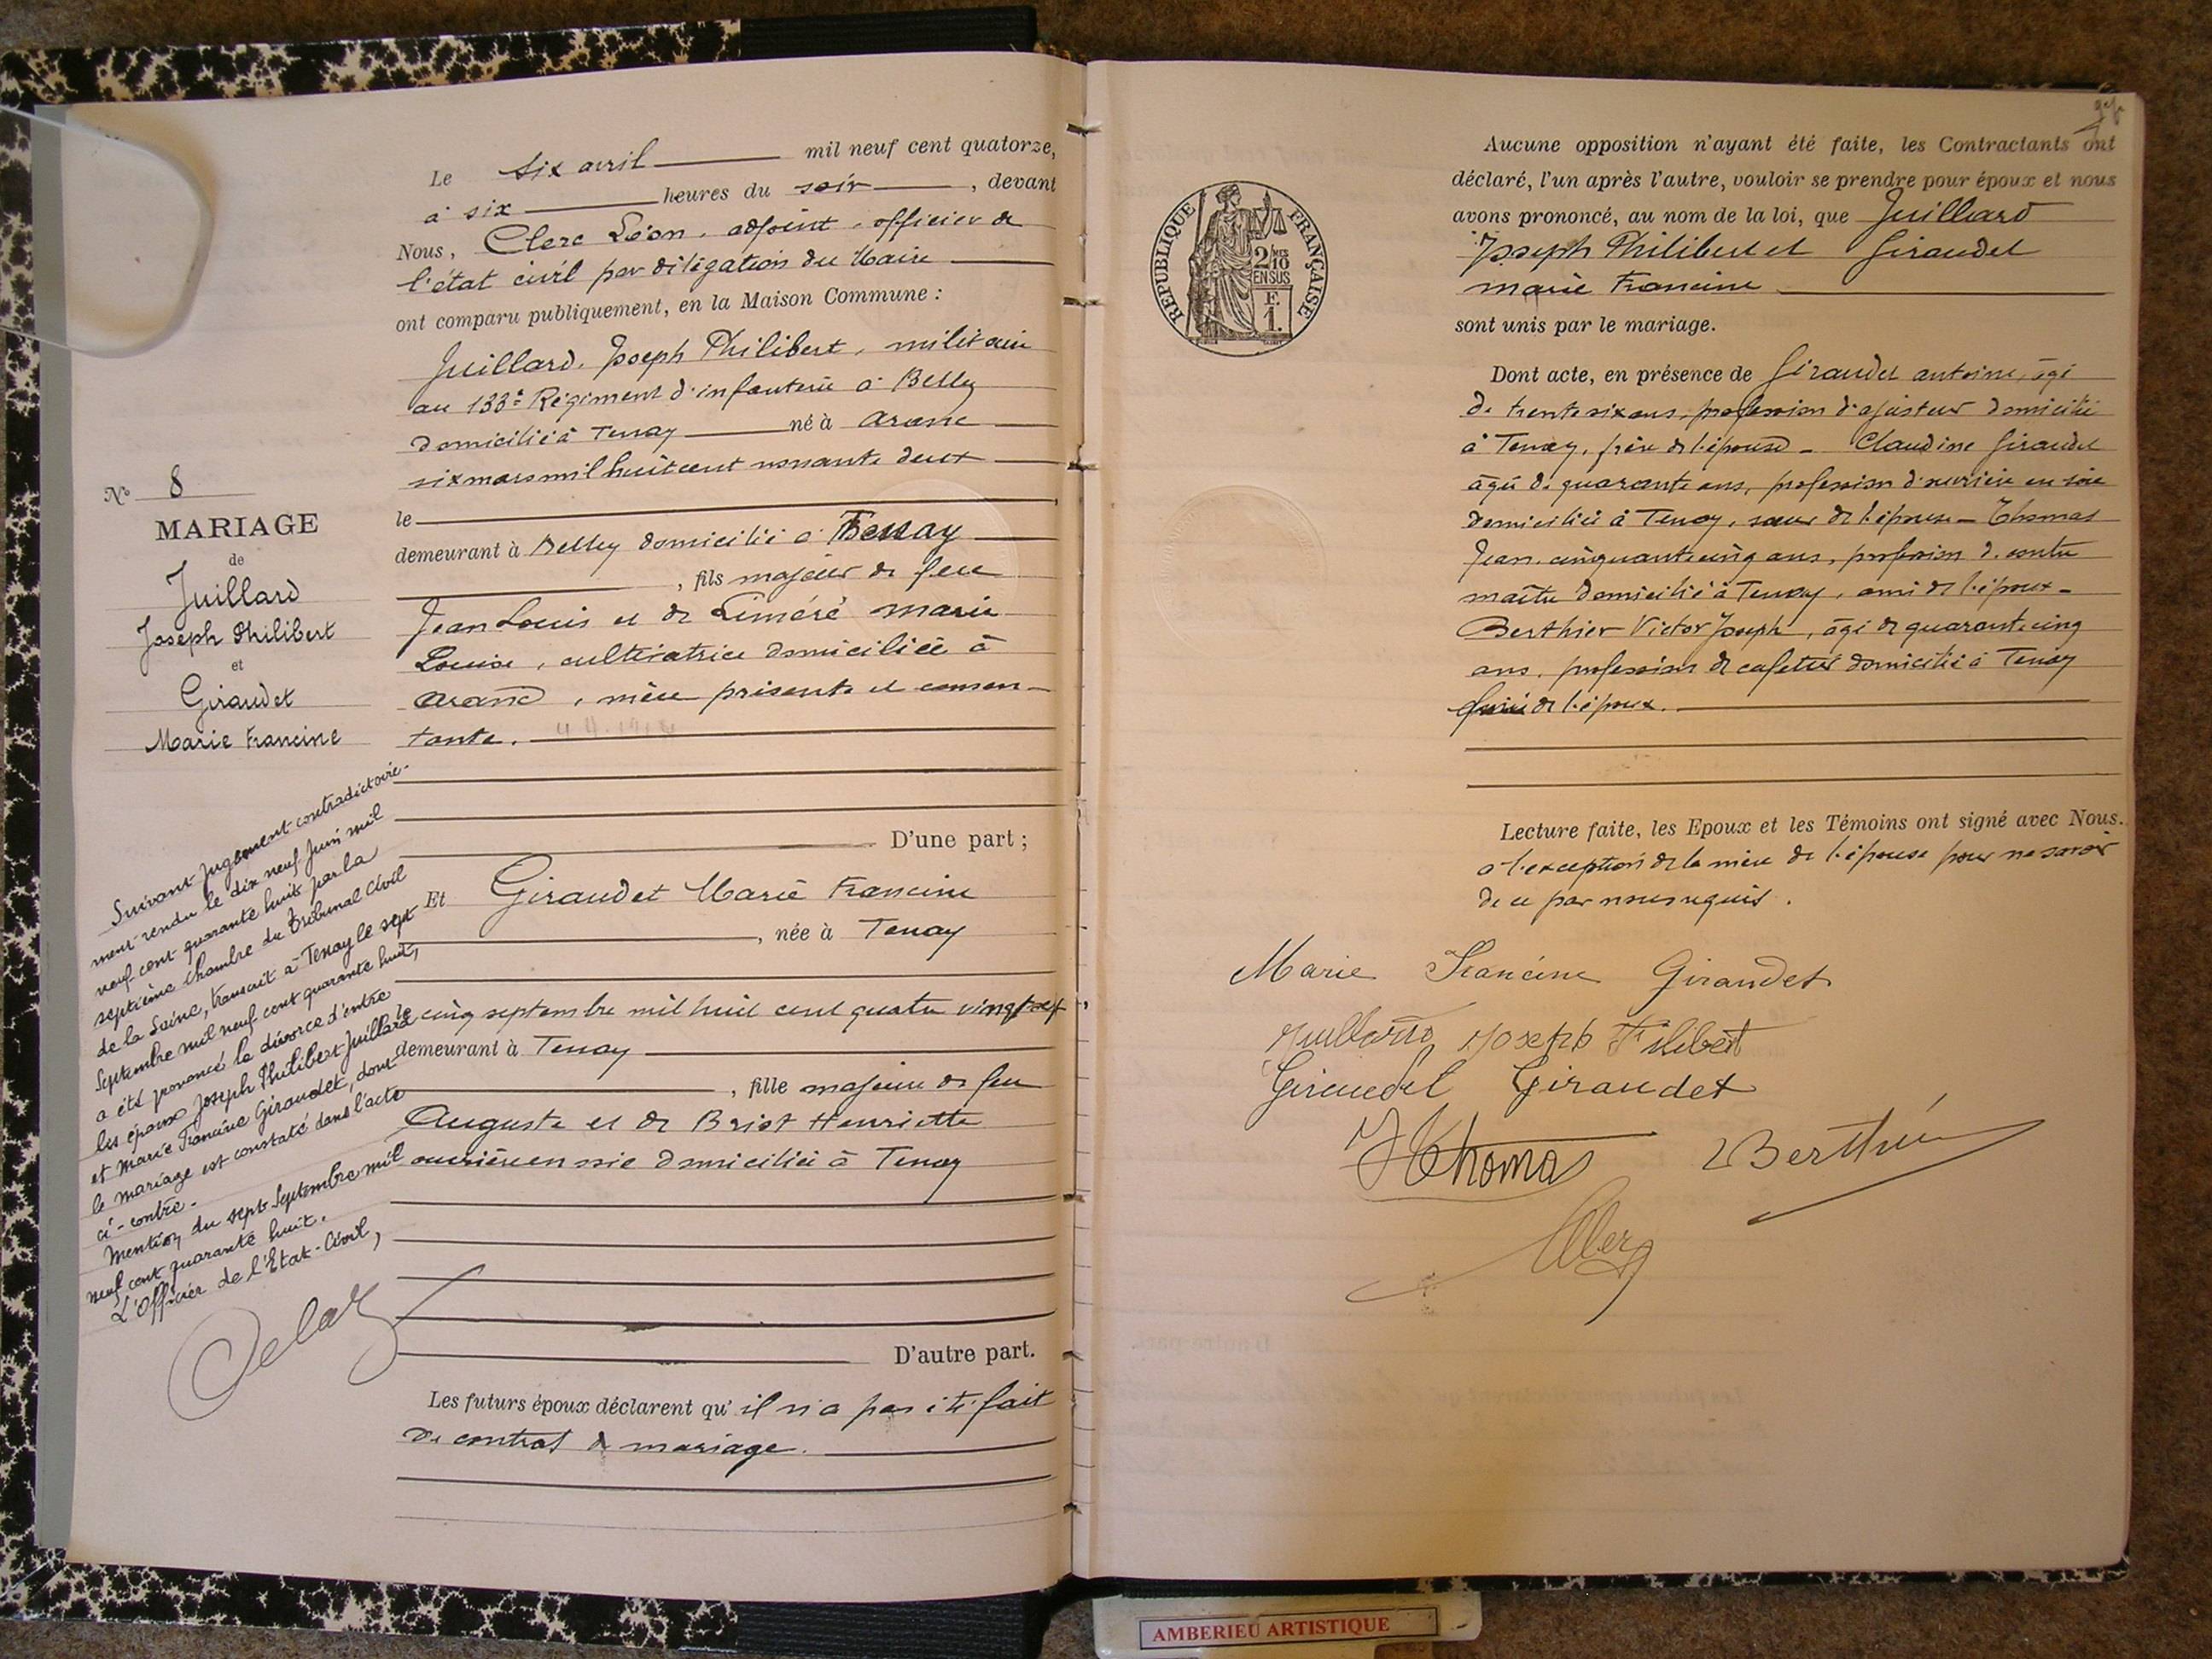 Le six avril mil neuf cent quatorze,
à six heures du soir, devant
Nous, Clerc Léon, adjoint, officier de
l'état civil par délégation du Maire
ont comparu publiquement, en la Maison Commune :
Juillard Joseph Philibert, militaire
au 133e Régiment d'infanterie à Belley
domicilié à Tenay né à Aranc
six mars mil huit cent nonante deux
le
demeurant à Belley domicilié à Tenay
, fils majeur de feu
Jean Louis et de Liméré Marie
Louise, cultivatrice domiciliée à
Aranc, mère présente et consen-
tante.
N° 8
MARIAGE
de
Juillard
Joseph Philibert
et
Giraudet
Marie Francine
Suivant jugement contradictoire-
ment rendu le dix neuf Juin mil
neuf cent quarante huit par la
septième chambre du Tribunal Civil
de la Seine, transcrit à Tenay le sept
Septembre mil neuf cent quarante huit,
a été prononcé le divorce d'entre
les époux Joseph Philibert Juillard
et Marie Francine Giraudet, dont
le mariage est constaté dans l'acte
ci-contre.
Mention du sept Septembre mil
neuf cent quarante huit.
L'Officier de l'Etat-Civil,
D'une part ;
Et Giraudet Marie Francine
, née à Tenay
le cinq septembre mil huit cent quatre vingt
demeurant à Tenay
, fille majeure de feu
Auguste et de Briot Henriette
ouvrière en soie domiciliée à Tenay
D'autre part.
Les futurs époux déclarent qu'il n'a pas été fait
de contrat de mariage.
RÉPUBLIQUE FRANÇAISE
2/10 EN SUS
F. 1.
Aucune opposition n'ayant été faite, les Contractants ont
déclaré, l'un après l'autre, vouloir se prendre pour époux et nous
avons prononcé, au nom de la loi, que Juillard
Joseph Philibert et Giraudet
Marie Francine
sont unis par le mariage.
Dont acte, en présence de Giraudet Antoine, âgé
de trente six ans, profession d'ajusteur domicilié
à Tenay, frère de l'épouse - Claudine Giraudet
âgée de quarante ans, profession d'ouvrière en soie
domiciliée à Tenay, sœur de l'épouse - Thomas
Jean, cinquante cinq ans, profession de contre
maître domicilié à Tenay, ami de l'époux -
Berthier Victor Joseph, âgé de quarante cinq
ans, profession de cafetier domicilié à Tenay
de l'époux.
Lecture faite, les Epoux et les Témoins ont signé avec Nous.
à l'exception de la mère de l'épouse pour ne savoir
de ce par nous requis.
Marie Francine Giraudet
Juillard Joseph Filibert
Giraudet Giraudet
Thomas Berthier
Clerc
AMBERIEU ARTISTIQUE